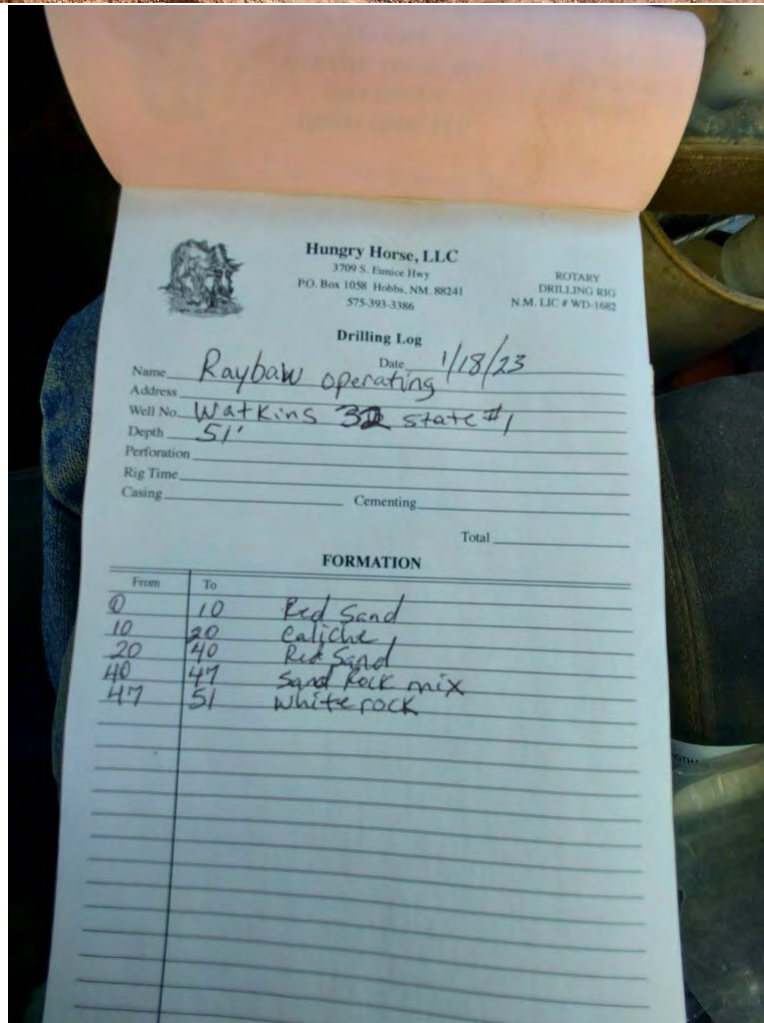 Hungry Horse, LLC
3709 S. Eunice Hwy
P.O. Box 1058 Hobbs, NM. 88241
575-393-3386
ROTARY
DRILLING RIG
N.M. LIC # WD-1682
Drilling Log
Name Raybaw operating Date 1/18/23
Address
Well No. Watkins 32 state #1
Depth 51'
Perforation
Rig Time
Casing Cementing
Total
FORMATION
From To
0 10 Red Sand
10 20 Caliche
20 40 Red Sand
40 47 Sand Rock mix
47 51 white rock